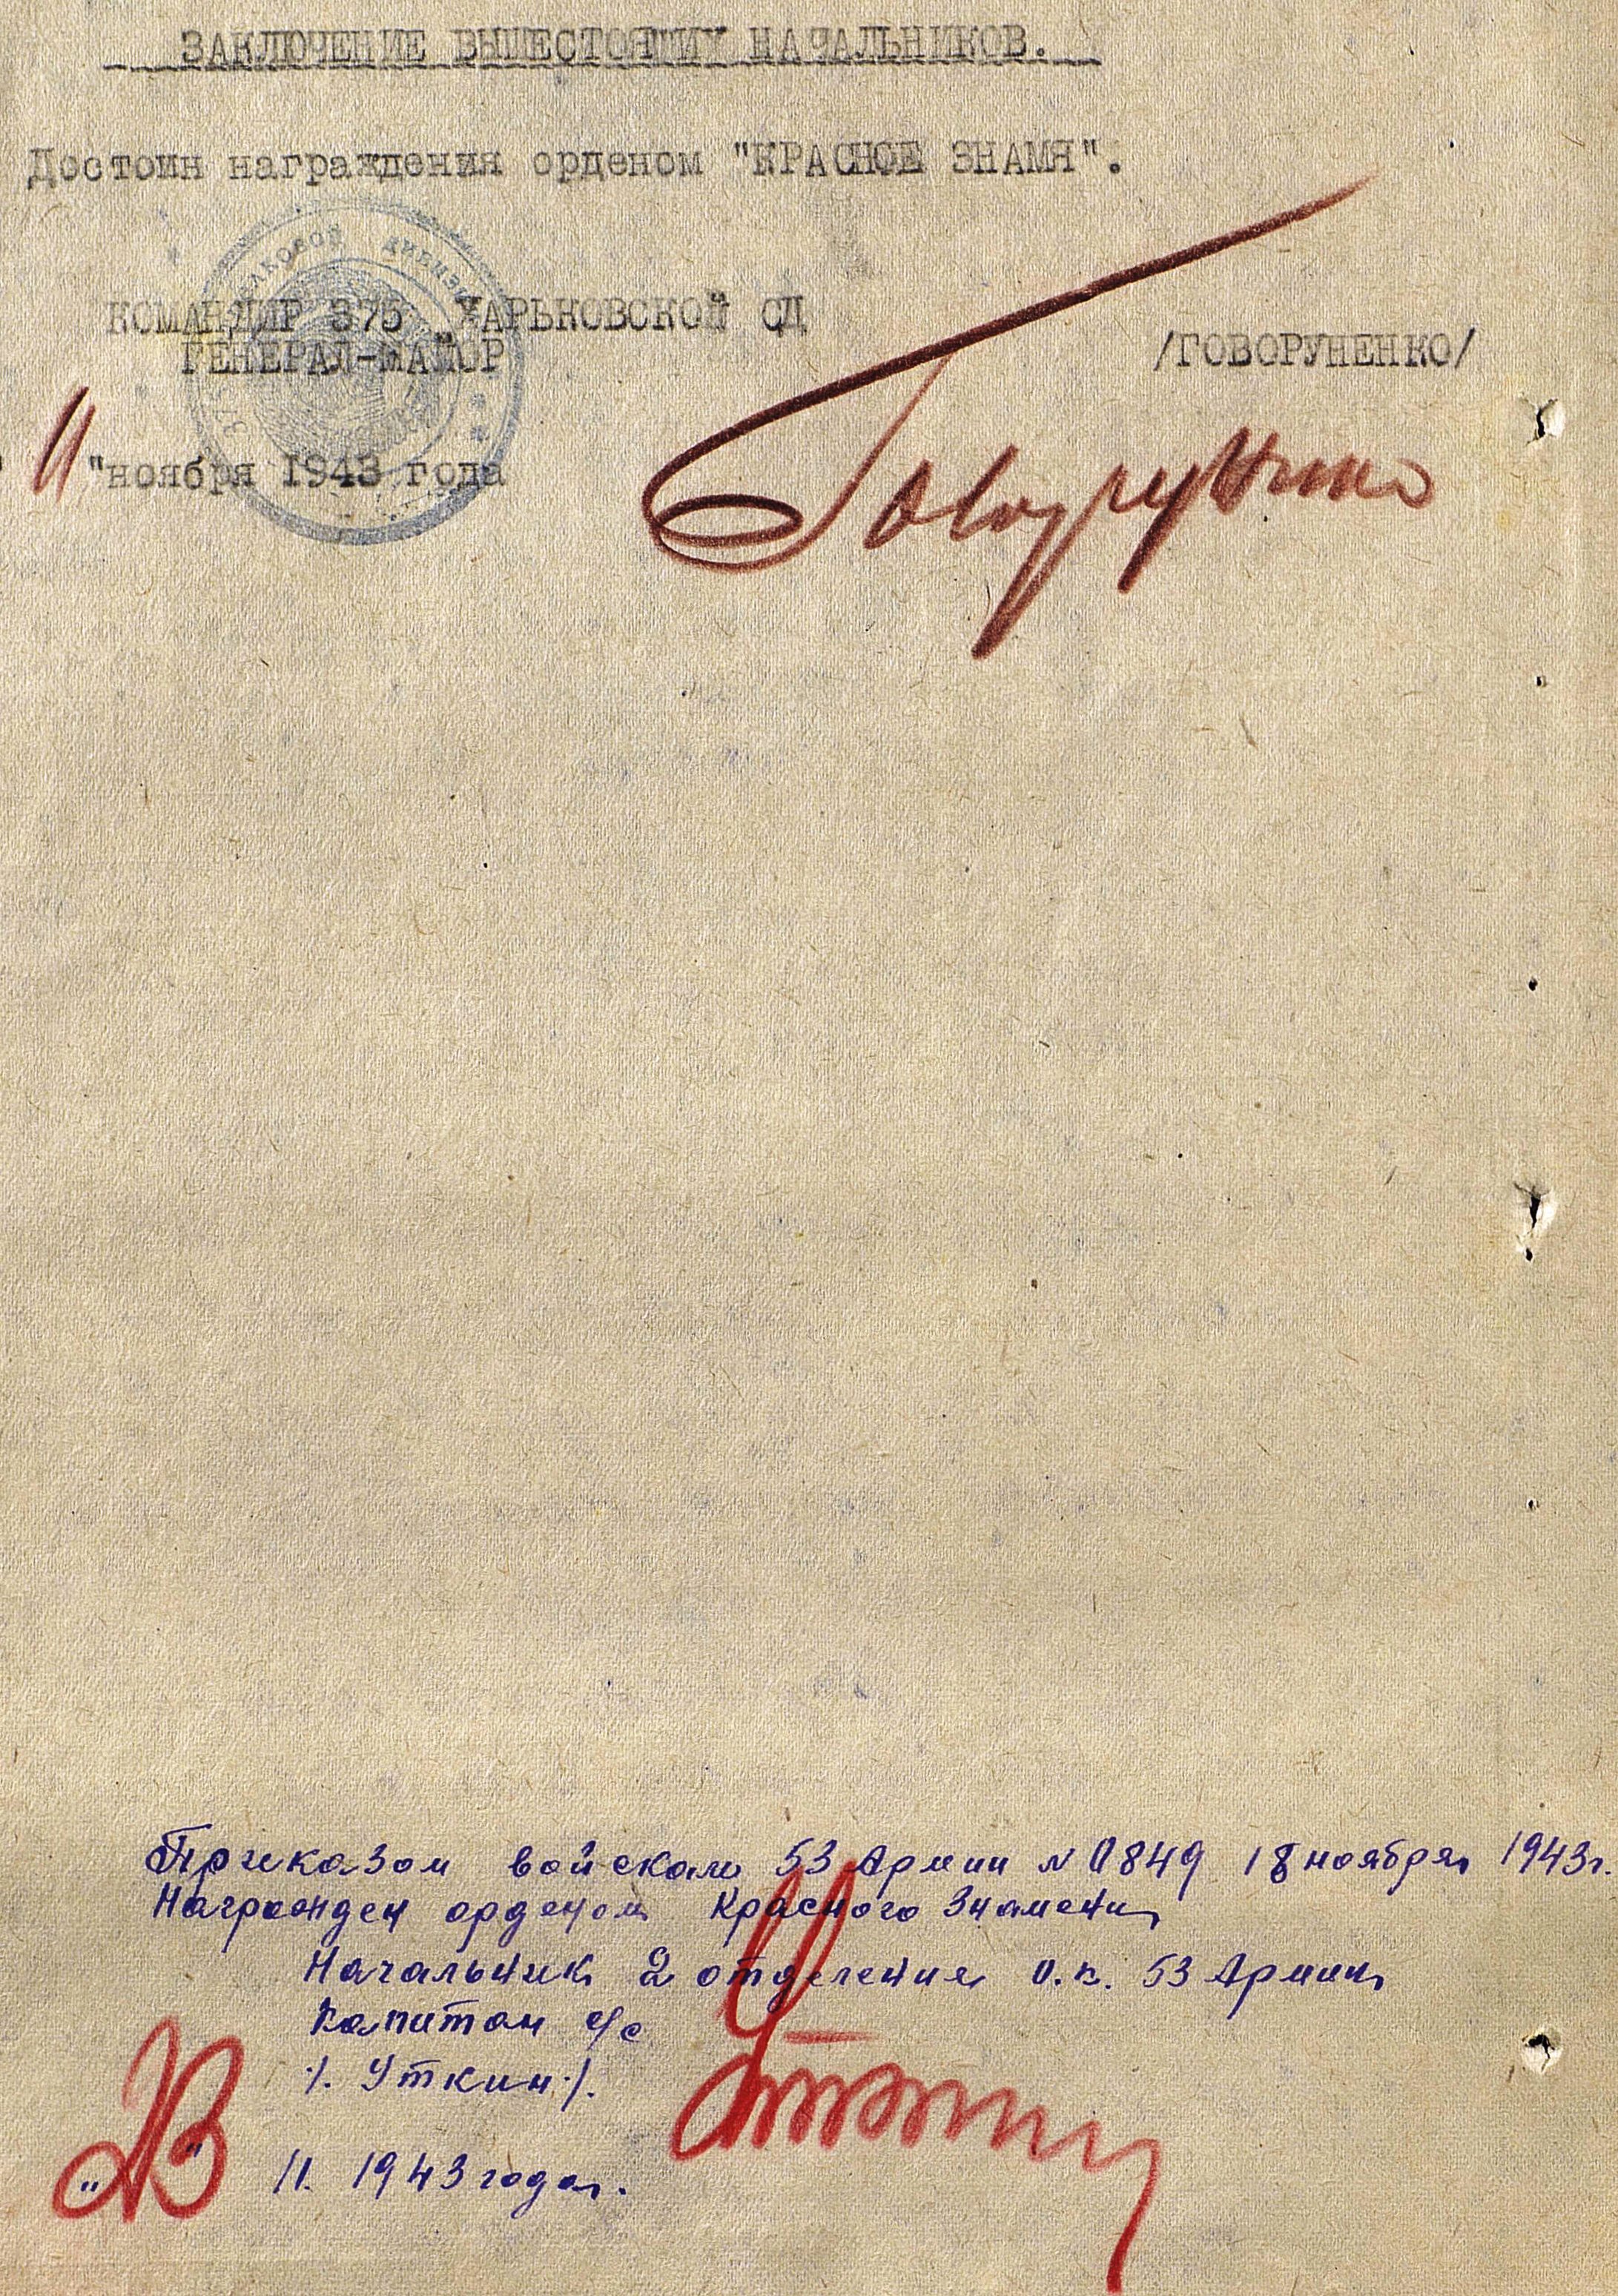 ЗАКЛЮЧЕНИЕ ВЫШЕСТОЯЩИХ НАЧАЛЬНИКОВ.
Достоин награждения орденом "КРАСНОЕ ЗНАМЯ".
СТРЕЛКОВОЙ ДИВИЗИИ
КОМАНДИР 375 ХАРЬКОВСКОЙ СД
ГЕНЕРАЛ-МАЙОР
/ГОВОРУНЕНКО/
"11" ноября 1943 года
Говоруненко
Приказом войскам 53 Армии № 0849 18 ноября 1943 г.
Награжден орденом Красного Знамени
Начальник 2 отделения О.К. 53 Армии
Капитан а/с
/. Уткин ./.
"23" 11. 1943 года.